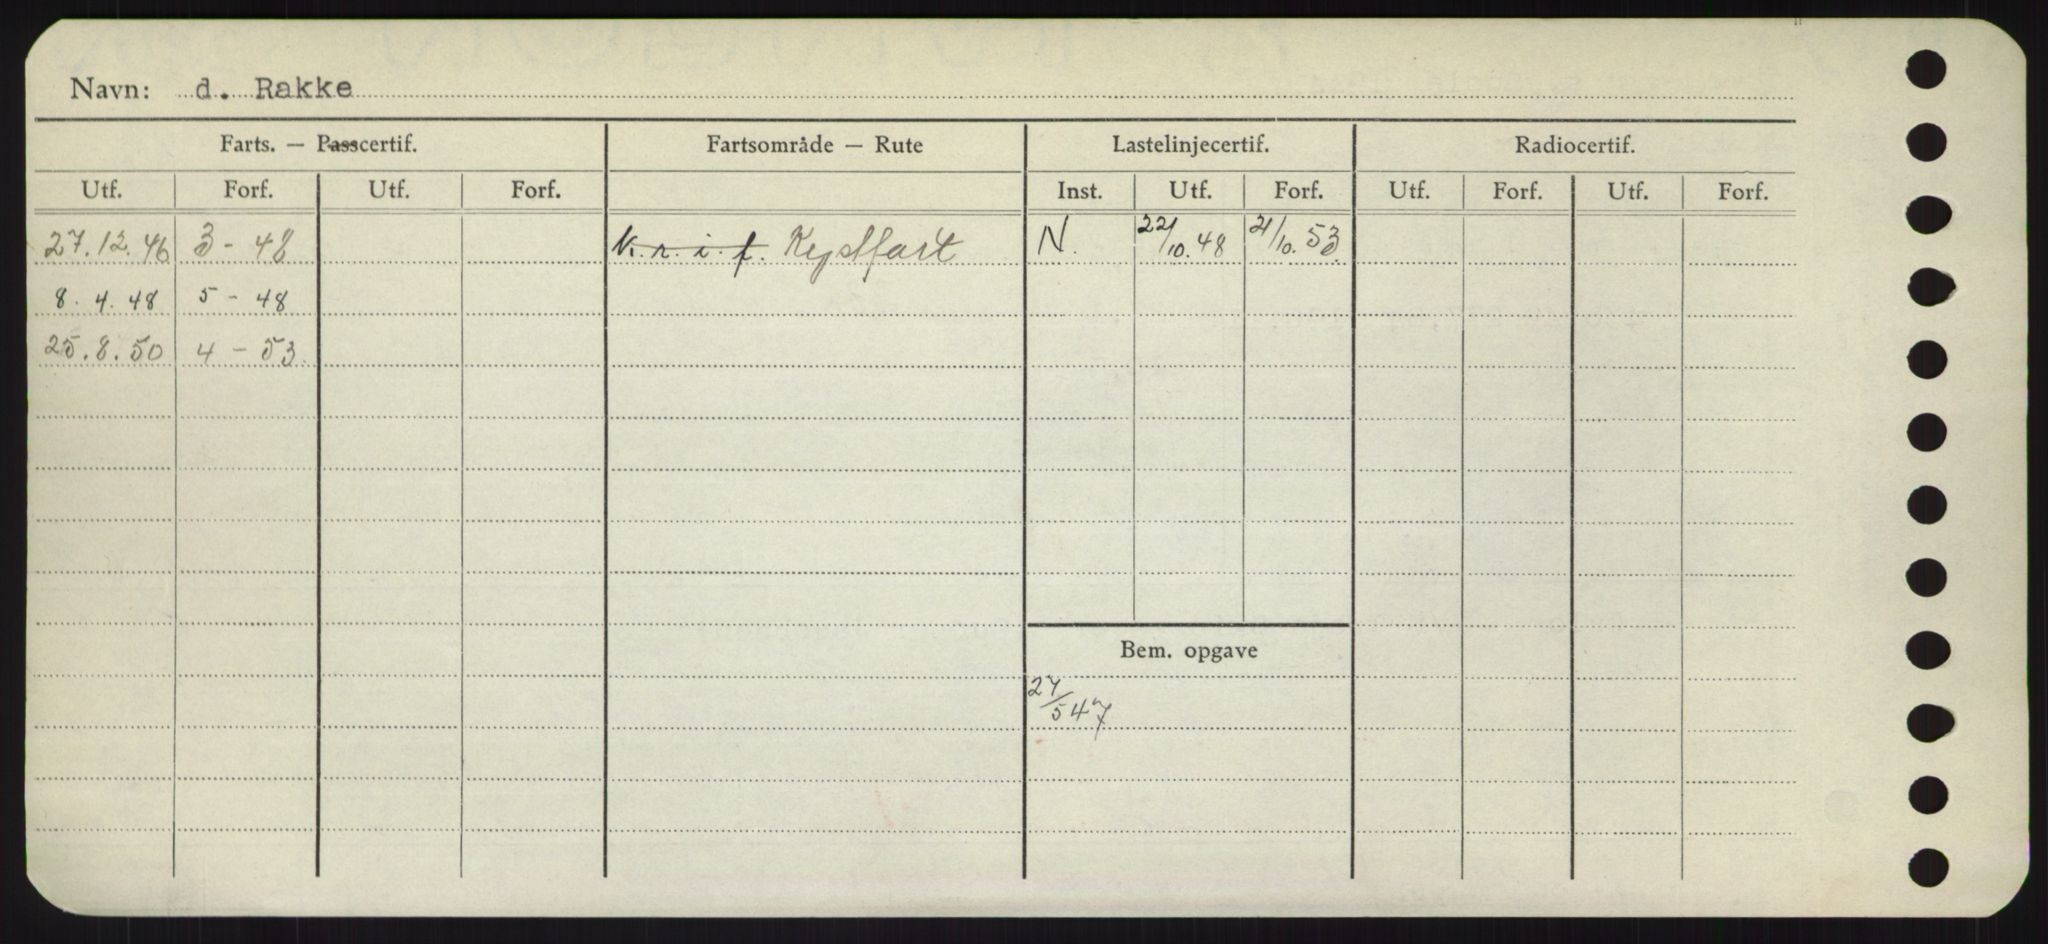 Navn: d. Rakke
Farts. — Passcertif. Fartsområde — Rute Lastelinjecertif. Radiocertif.
Utf. Forf. Utf. Forf. Inst. Utf. Forf. Utf. Forf. Utf. Forf.
27.12.46 3 - 48 k.r.i.f. Kystfart N. 22/10.48 21/10.53
8.4.48 5 - 48
25.8.50 4 - 53
Bem. opgave
27/5 47